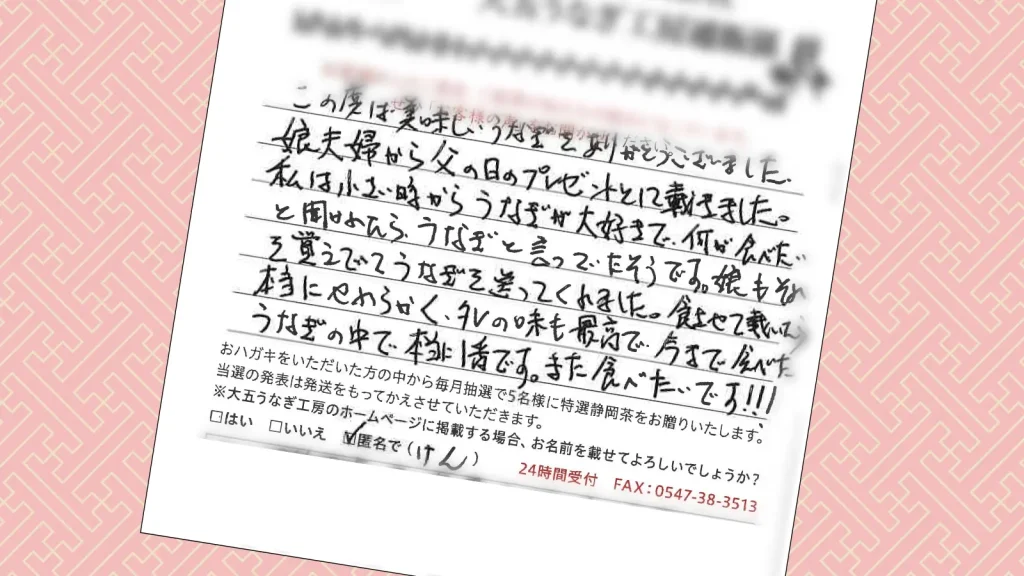 大五うなぎ工房
この度は美味しいうなぎをありがとうございました。
娘夫婦から父の日のプレゼントとして戴きました。
私は小さい時からうなぎが大好きで、何が食べたい
と聞かれたら、うなぎと言っていたそうです。娘もそれ
を覚えてていうなぎを送ってくれました。食させて戴いたら
本当にやわらかく、タレの味も最高で、今まで食べた
うなぎの中で本当に1番です。また食べたいです!!!
おハガキをいただいた方の中から毎月抽選で5名様に特選静岡茶をお贈りいたします。
当選の発表は発送をもってかえさせていただきます。
※大五うなぎ工房のホームページに掲載する場合、お名前を載せてよろしいでしょうか?
□はい □いいえ ☑匿名で(けん)
24時間受付 FAX:0547-38-3513